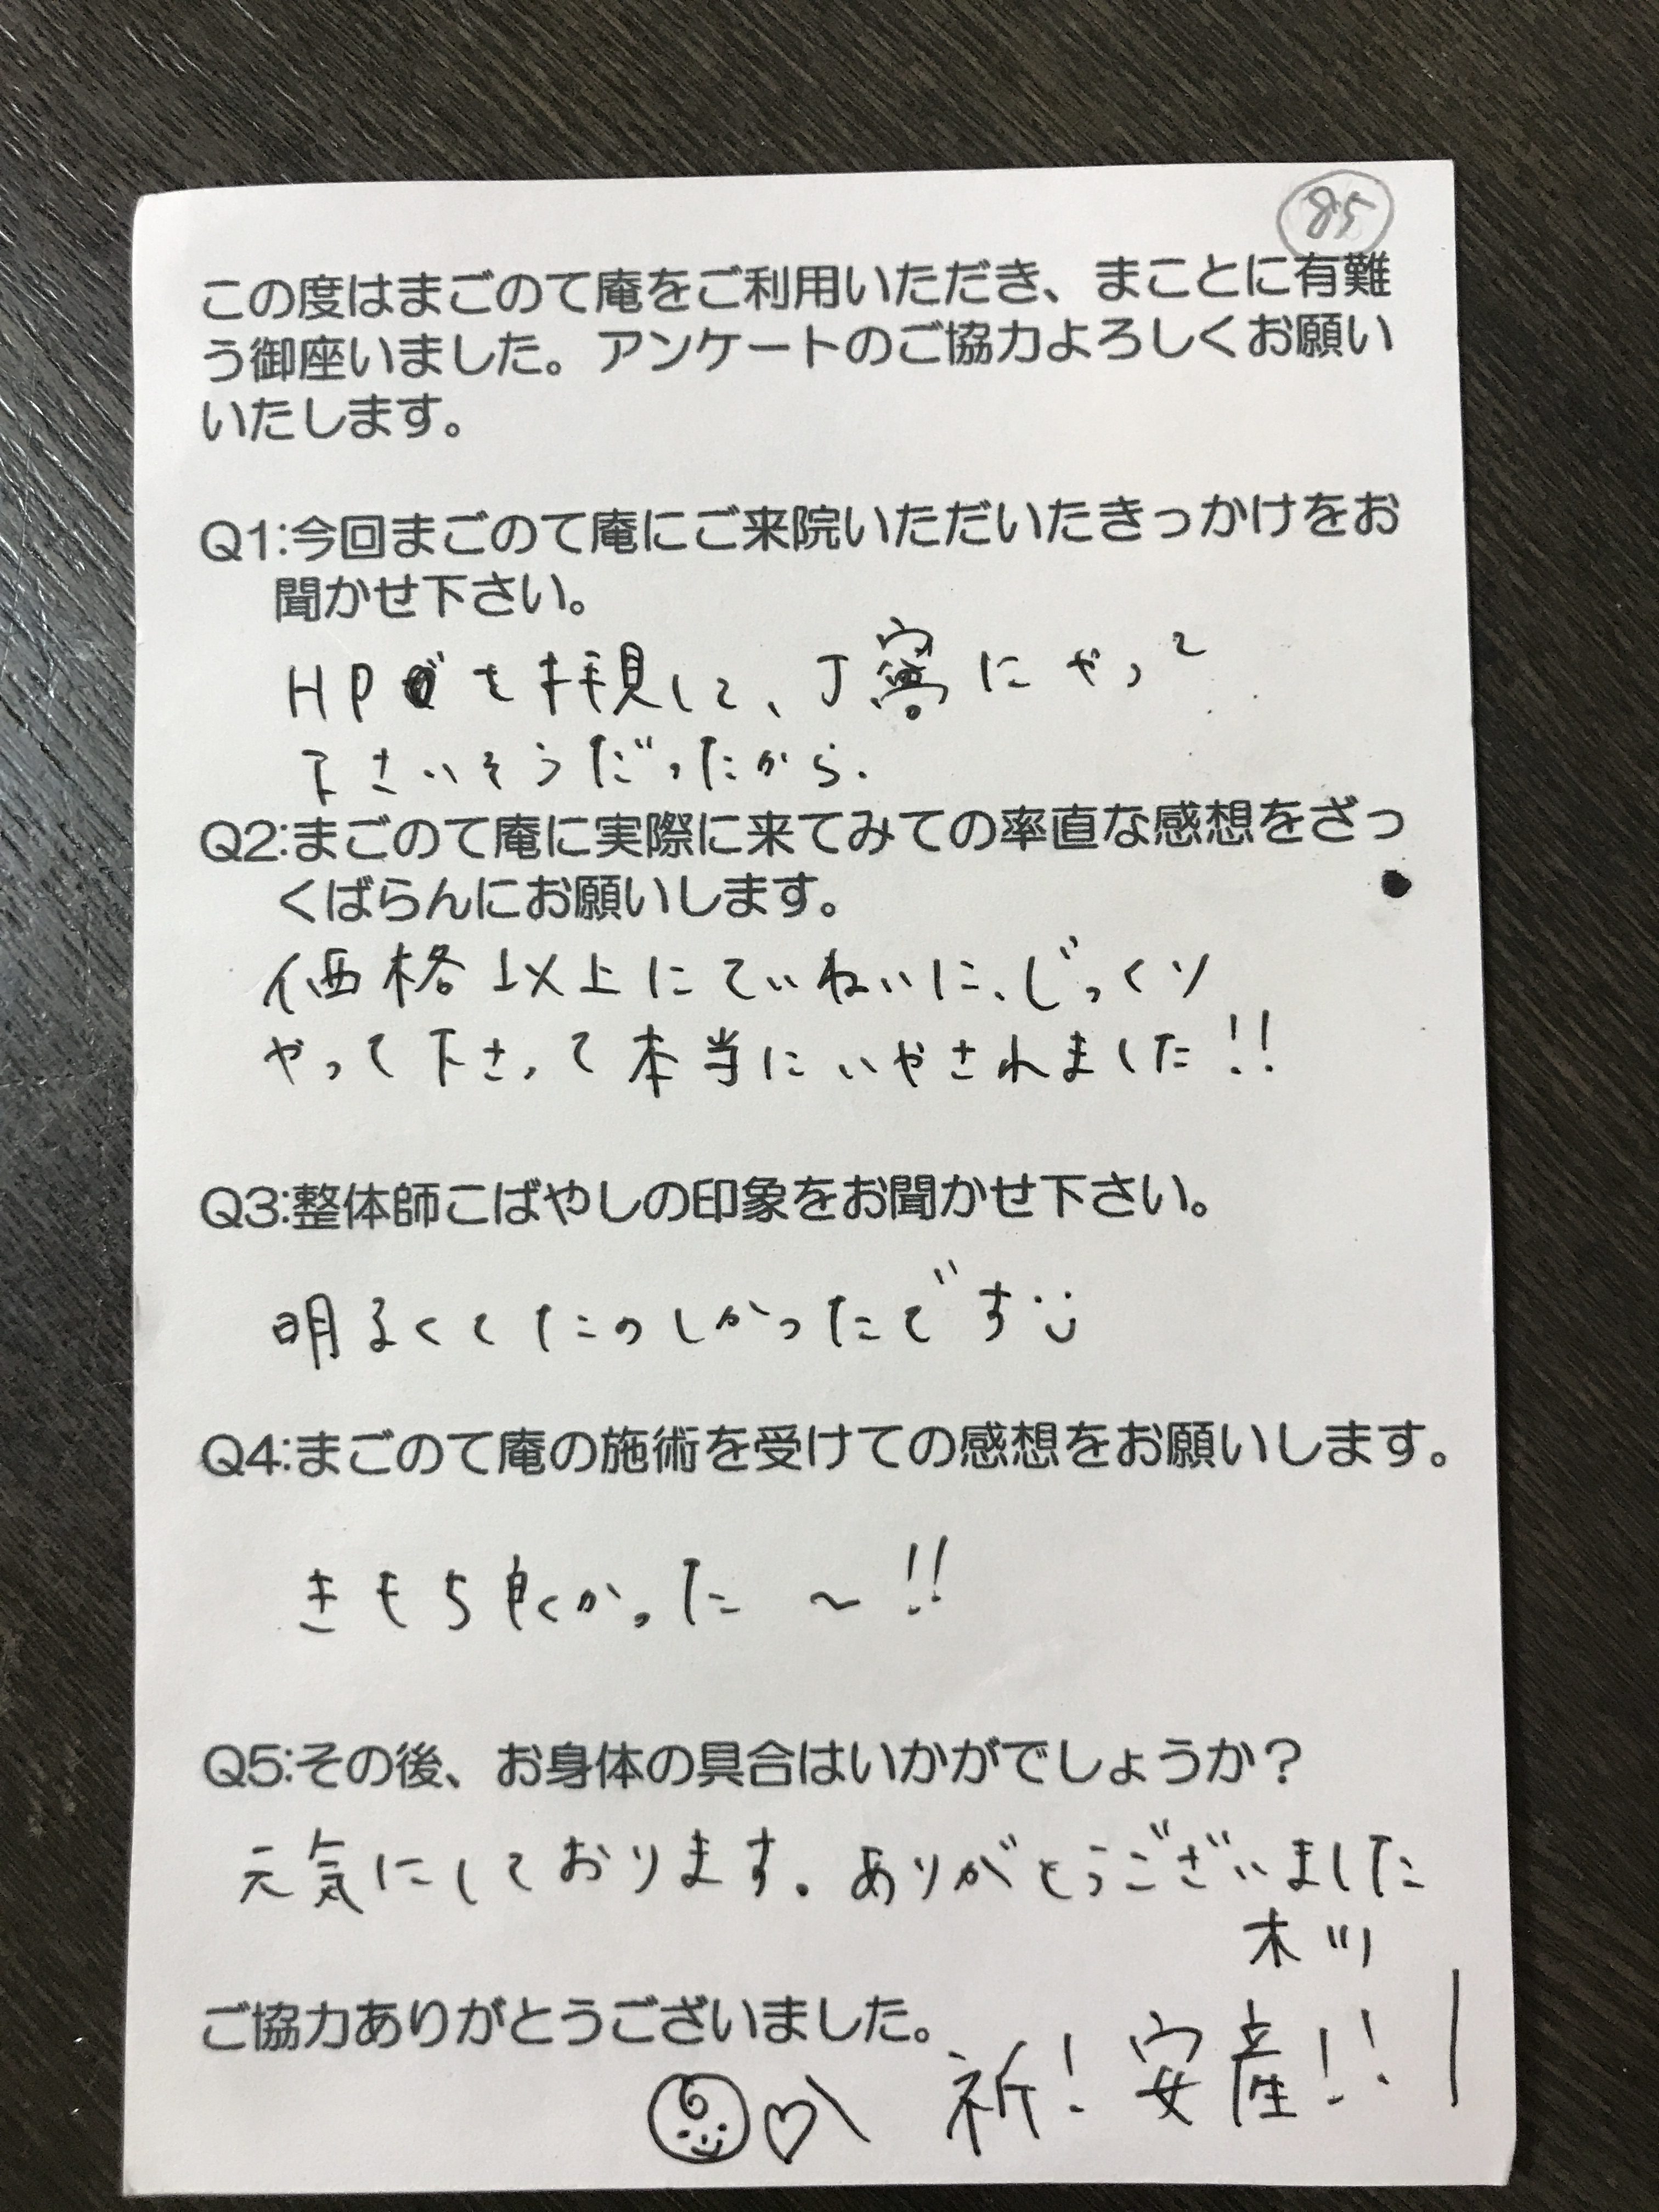 85
この度はまごのて庵をご利用いただき、まことに有難
う御座いました。アンケートのご協力よろしくお願い
いたします。
Q1:今回まごのて庵にご来院いただいたきっかけをお
聞かせ下さい。
HPを拝見して、丁寧にやって
下さいそうだったから.
Q2:まごのて庵に実際に来てみての率直な感想をざっ
くばらんにお願いします。
価格以上にていねいに、じっくり
やって下さって本当にいやされました!!
Q3:整体師こばやしの印象をお聞かせ下さい。
明るくてたのしかったです
Q4:まごのて庵の施術を受けての感想をお願いします。
きもち良くかった 〜!!
Q5:その後、お身体の具合はいかがでしょうか？
元気にしております。ありがとうございました
ご協力ありがとうございました。
祈! 安産!!